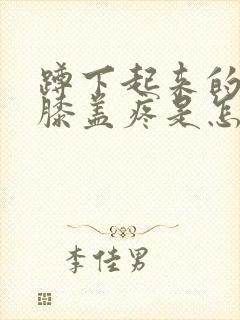 蹲下起来的
膝盖疼是怎
李佳男